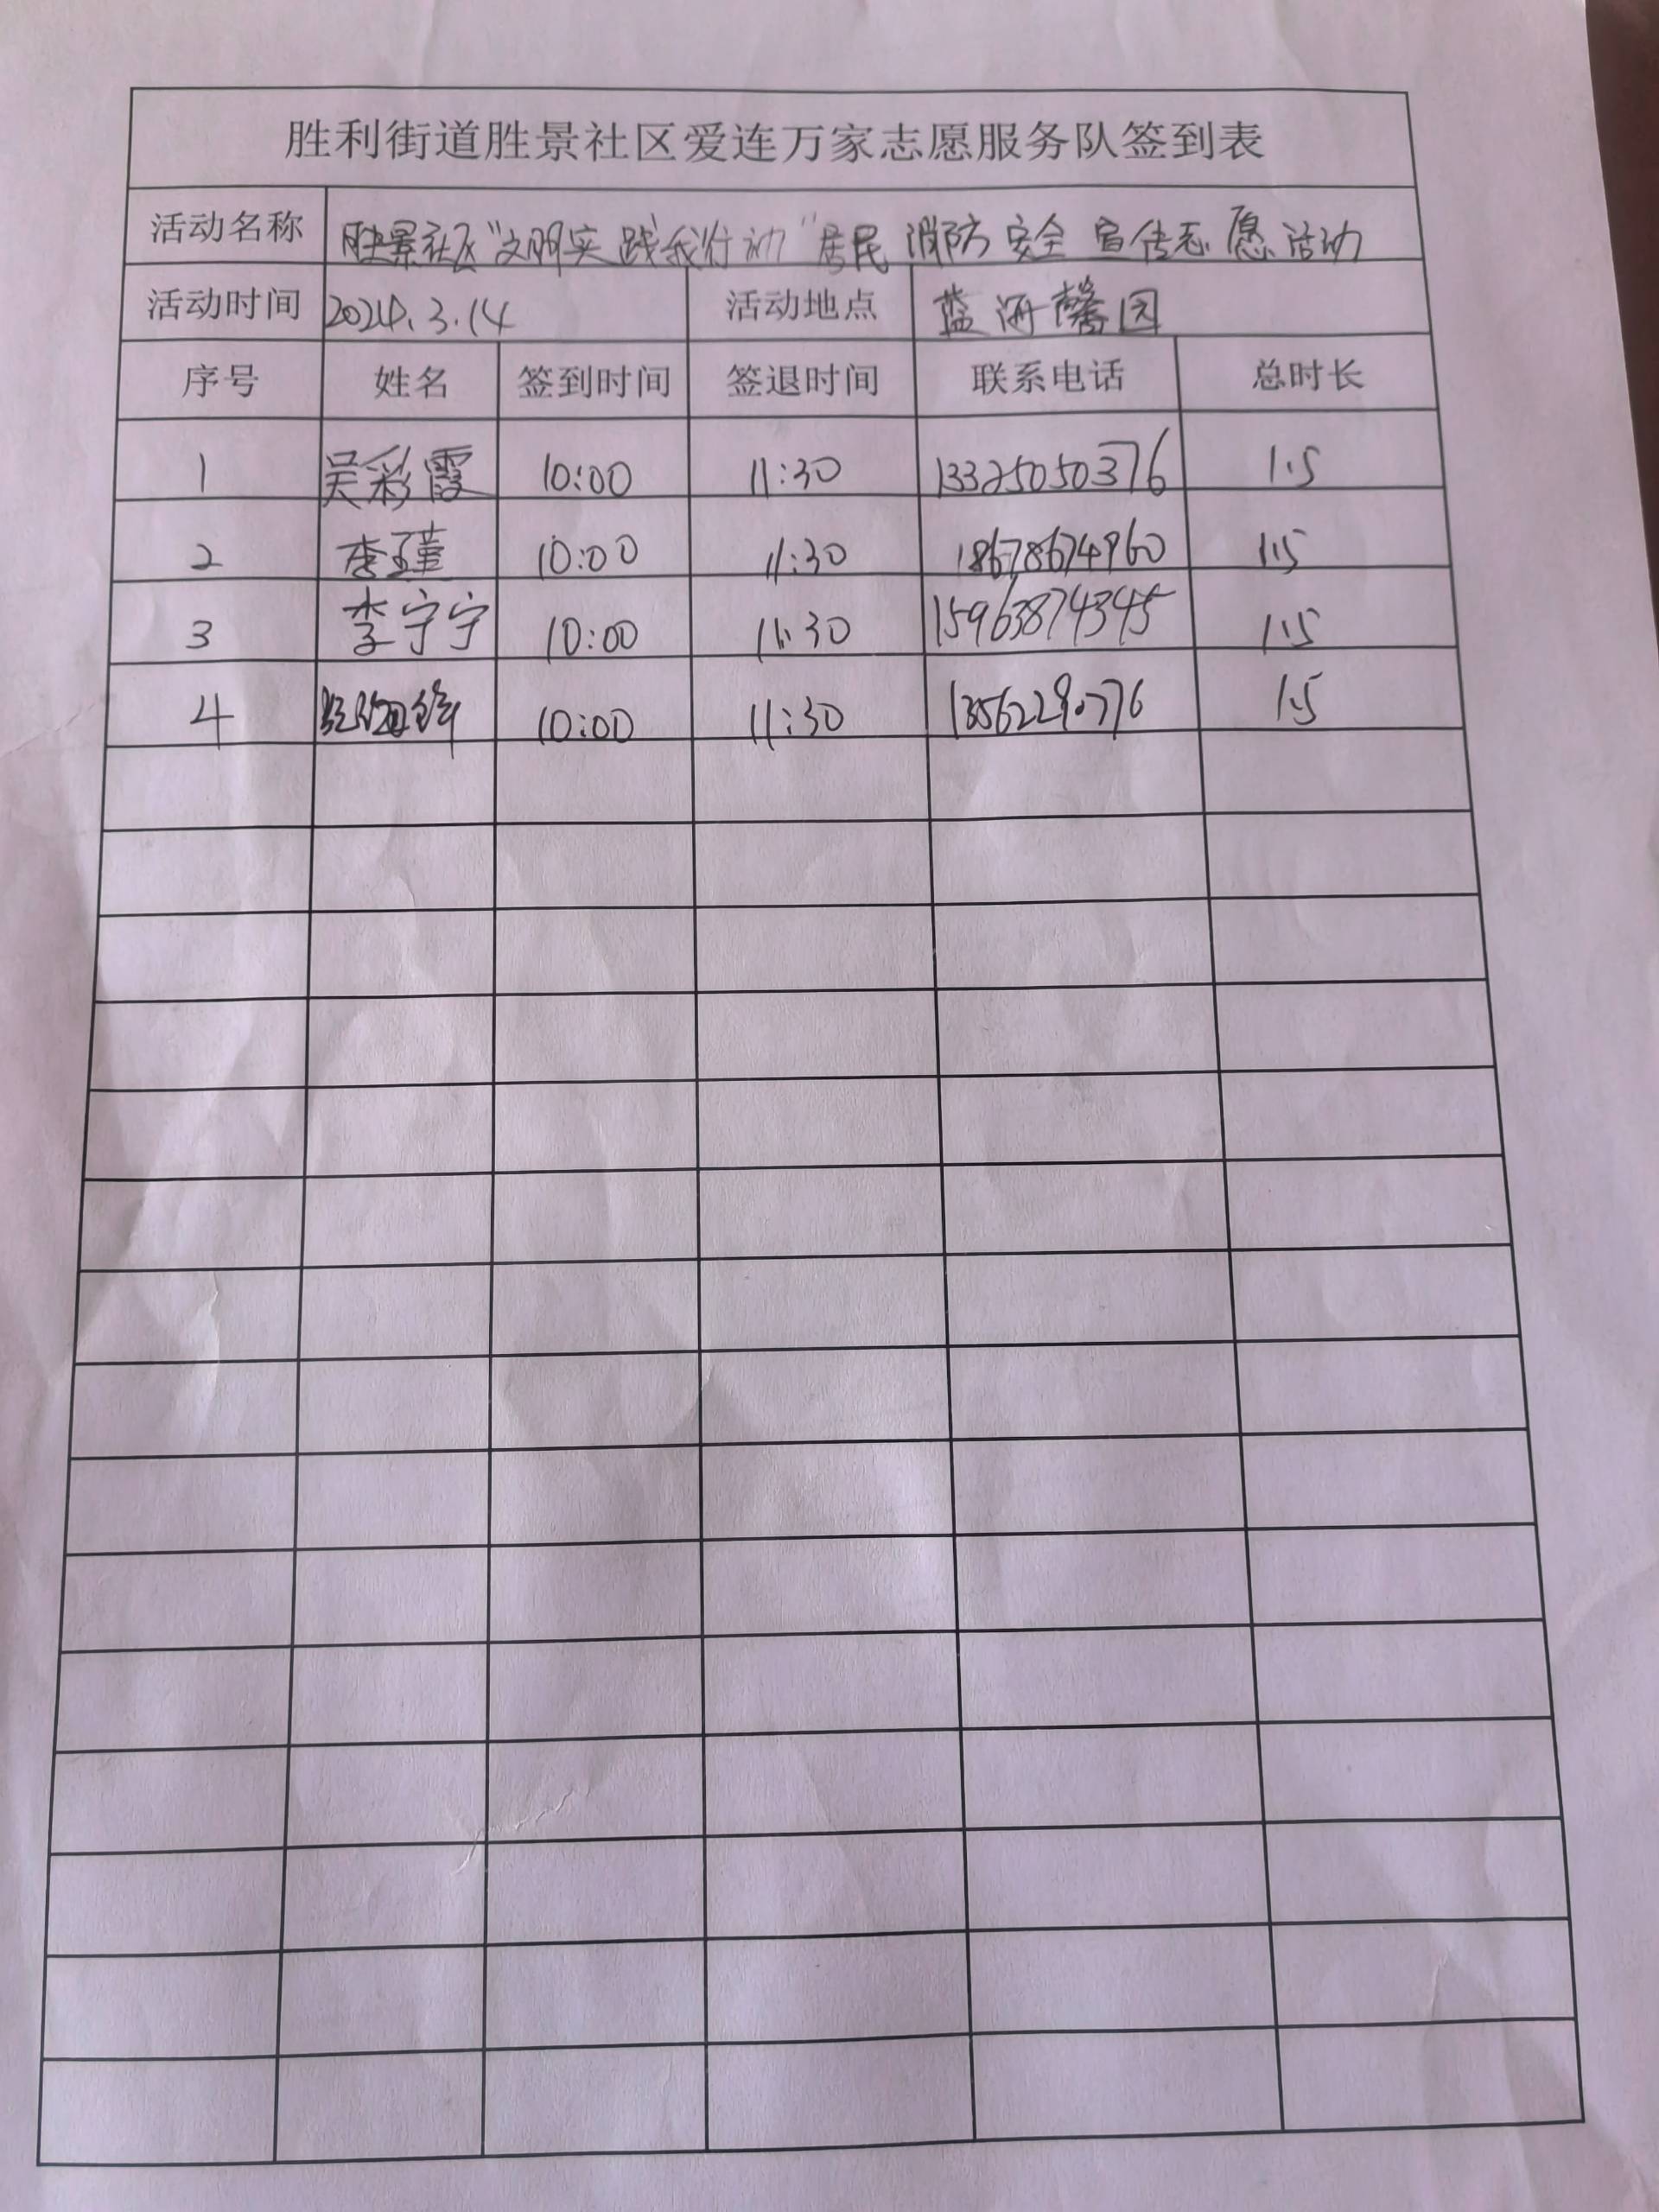 胜利街道胜景社区爱连万家志愿服务队签到表
活动名称 胜景社区“文明实践我行动”居民消防安全宣传志愿活动
活动时间 2024.3.14 活动地点 蓝海馨园
序号 姓名 签到时间 签退时间 联系电话 总时长
1 吴彩霞 10:00 11:30 13325050376 1.5
2 李瑾 10:00 11:30 18678674960 1.5
3 李宁宁 10:00 11:30 15963874345 1.5
4 10:00 11:30 1.5